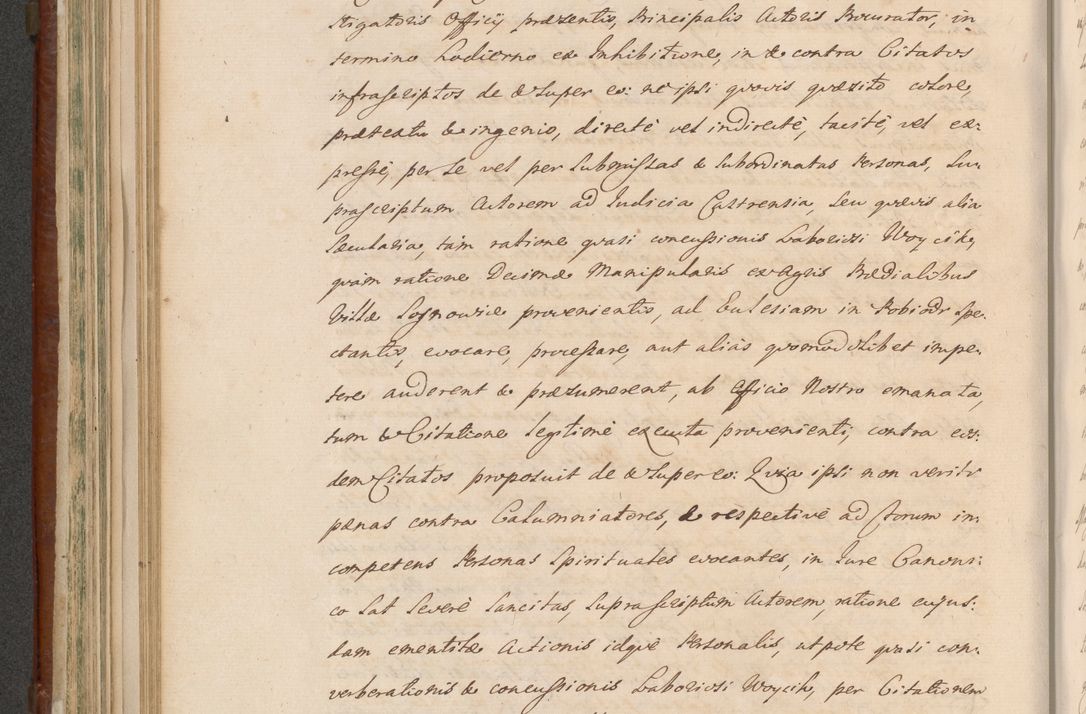 stigatoris Officij præsentis, Principalis Actoris Procurator, in
termino hodierno ex Inhibitione, in & contra Citatos
infrascriptos de & super eo: ne ipsi quovis quæsito colore,
prætextu & ingenio, directè vel indirectè, tacitè, vel ex-
pressè, per se vel per submissas & subordinatas Personas, su-
prascriptum Actorem ad Iudicia Castrensia, seu quævis alia
sæcularia, tàm ratione quasi concussionis Laboriosi Woycik,
quam ratione Decimæ Manipularis ex Agris Prædialibus
Villæ Sosnowice provenientis, ad Eculesiam in Pobiedr spe-
ctantis, evocare, processare, aut aliàs quomodolibet impe-
tere auderent & præsumerent, ab Officio Nostro emanata,
tum & Citatione legitimè executa provenienti, contra eos-
dem Citatos proposuit de & super eo: Quia ipsi non veriti
pænas contra Calumniatores, & respectivè ad forum in-
competens Personas Spirituales evocantes, in Iure Canoni-
co sat severè sancitas, suprascriptum Actorem, ratione cujus-
dam ementitæ Actionis idquè Personalis, utpote quasi con-
verberationis & concussionis Laboriosi Woycik, per Citationem